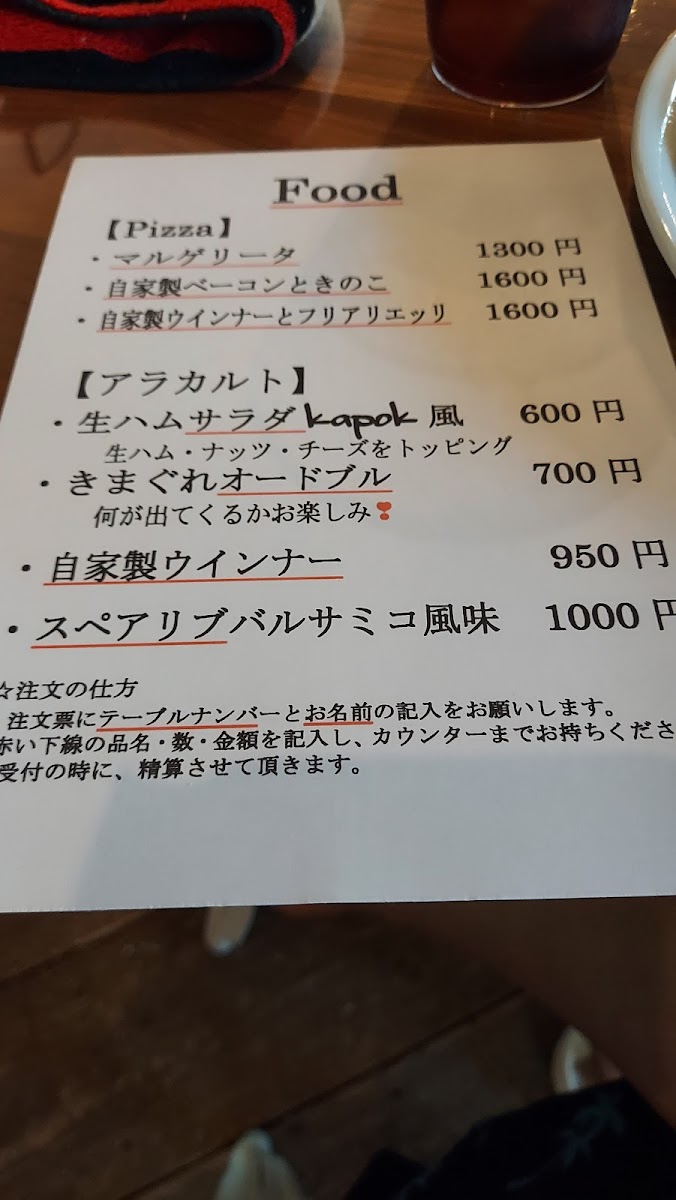 Food
【Pizza】
・マルゲリータ 1300 円
・自家製ベーコンときのこ 1600 円
・自家製ウインナーとフリアリエッリ 1600 円
【アラカルト】
・生ハムサラダ kapok 風 600 円
生ハム・ナッツ・チーズをトッピング
・きまぐれオードブル 700 円
何が出てくるかお楽しみ❣
・自家製ウインナー 950 円
・スペアリブバルサミコ風味 1000 円
☆注文の仕方
注文票にテーブルナンバーとお名前の記入をお願いします。
赤い下線の品名・数・金額を記入し、カウンターまでお持ちくださ
受付の時に、精算させて頂きます。